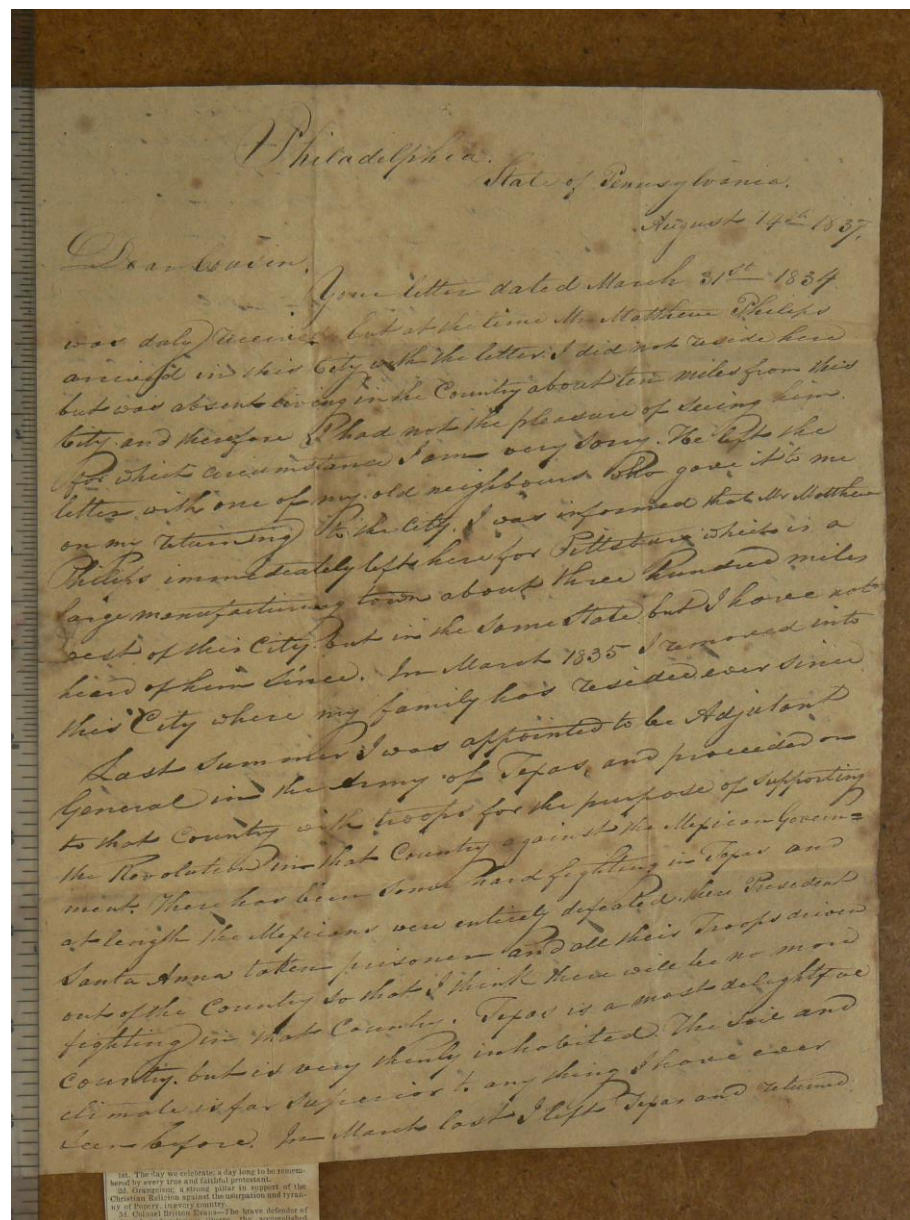 Philadelphia.
State of Pennsylvania.
August 14th 1837.
Dear Cousin,
Your letter dated March 31st 1834
was duly received but at the time Mr Matthew Philips
arrived in this City with the letter I did not reside here
but was absent living in the Country about ten miles from this
City and therefore I had not the pleasure of seeing him.
for which circumstance I am very sorry. He left the
letter with one of my old neighbours who gave it to me
on my returning to the City. I was informed that Mr Matthew
Philips immediately left here for Pittsburg which is a
large manufacturing town about three hundred miles
west of this City but in the same State but I have not
heard of him since. In March 1835 I removed into
this City where my family has resided ever since.
Last summer I was appointed to be Adjutant
General in the Army of Texas, and proceeded on
to that Country with troops for the purpose of supporting
the Revolution in that Country against the Mexican Govern=
ment. There has been some hard fighting in Texas and
at length the Mexicans were entirely defeated their President
Santa Anna taken prisoner and all their Troops driven
out of the Country so that I think there will be no more
fighting in that Country. Texas is a most delightful
country. but is very thinly inhabited. The Soil and
climate is far superior to any thing I have ever
seen before. In March last I left Texas and returned
1st. The day we celebrate; a day long to be remem-
bered by every true and faithful protestant.
2d. Orangeism; a strong pillar in support of the
Christian Religion against the usurpation and tyran-
ny of Popery, in every country.
3d. Colonel Britton Evans—The brave defender of
the accomplished